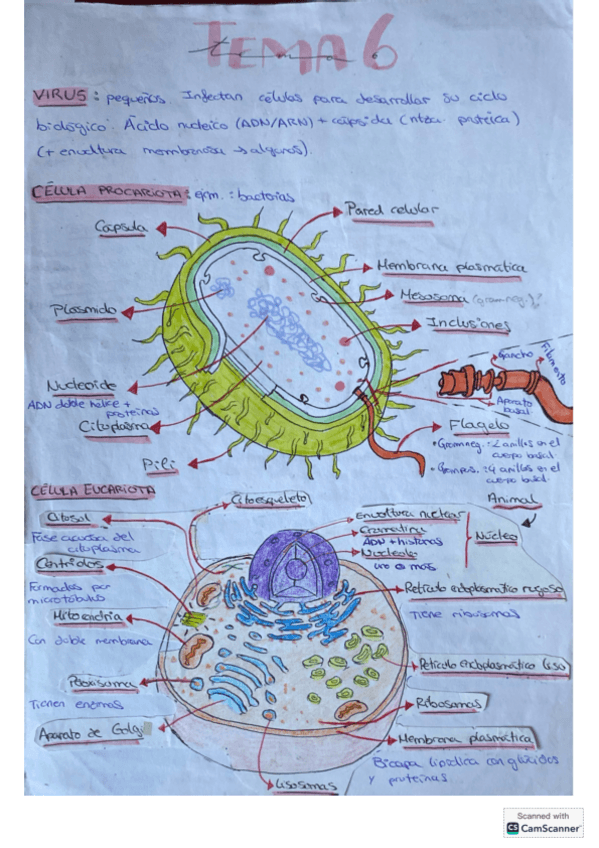 TEMA 6
tema 6
VIRUS: pequeños. Infectan células para desarrollar su ciclo
biológico. Ácido nucleico (ADN/ARN) + cápsida (ntza. protéica)
(+ envoltura membranosa → algunos).
CÉLULA PROCARIOTA: ejm.: bacterias
Cápsula
Pared celular
Membrana plasmática
Mesosoma (gramneg.)?
Plasmido
Inclusiones
Gancho
Filamento
Nucleoide
ADN doble hélice +
proteínas
Aparato
basal
Citoplasma
Flagelo
• Gramneg.: 2 anillos en el
cuerpo basal.
• Grampos.: 4 anillos en el
cuerpo basal.
Pili
CÉLULA EUCARIOTA
Animal
Citoesqueleto
Citosol
Fase acuosa del
citoplasma
Envoltura nuclear
Cromatina
ADN + histonas
Nucleolo
uno o más
Núcleo
Centriolos
Formados por
microtúbulos
Retículo endoplasmático rugoso
Tiene ribosomas
Mitocondria
Con doble membrana
Retículo endoplasmático liso
Peroxisoma
Tienen enzimas
Ribosomas
Aparato de Golgi
Membrana plasmática
Bicapa lipídica con glúcidos
y proteínas
Lisosomas
Scanned with
CS CamScanner